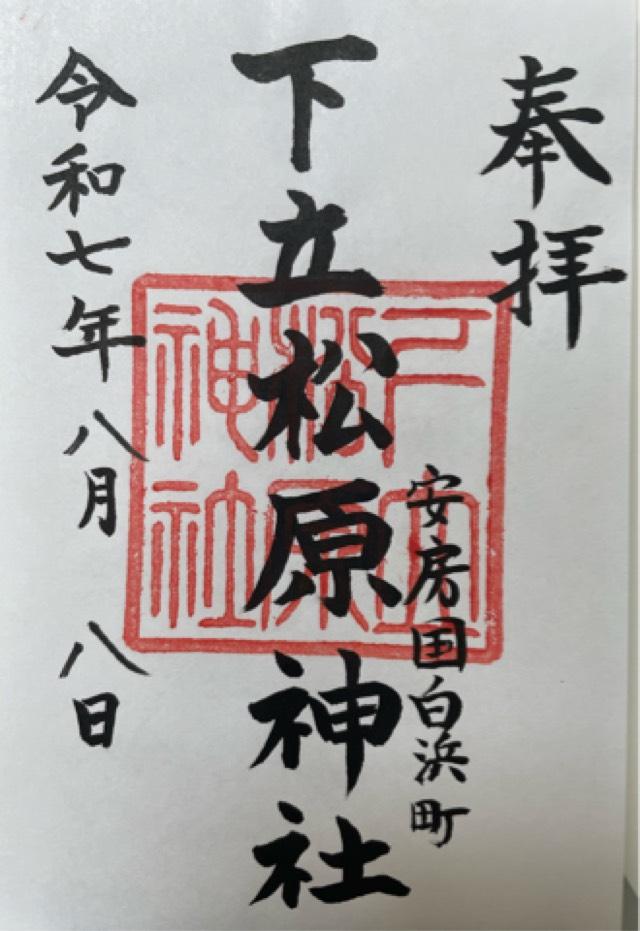 奉拝
安房国白浜町
下立松原神社
令和七年八月八日
下立
松原
神社